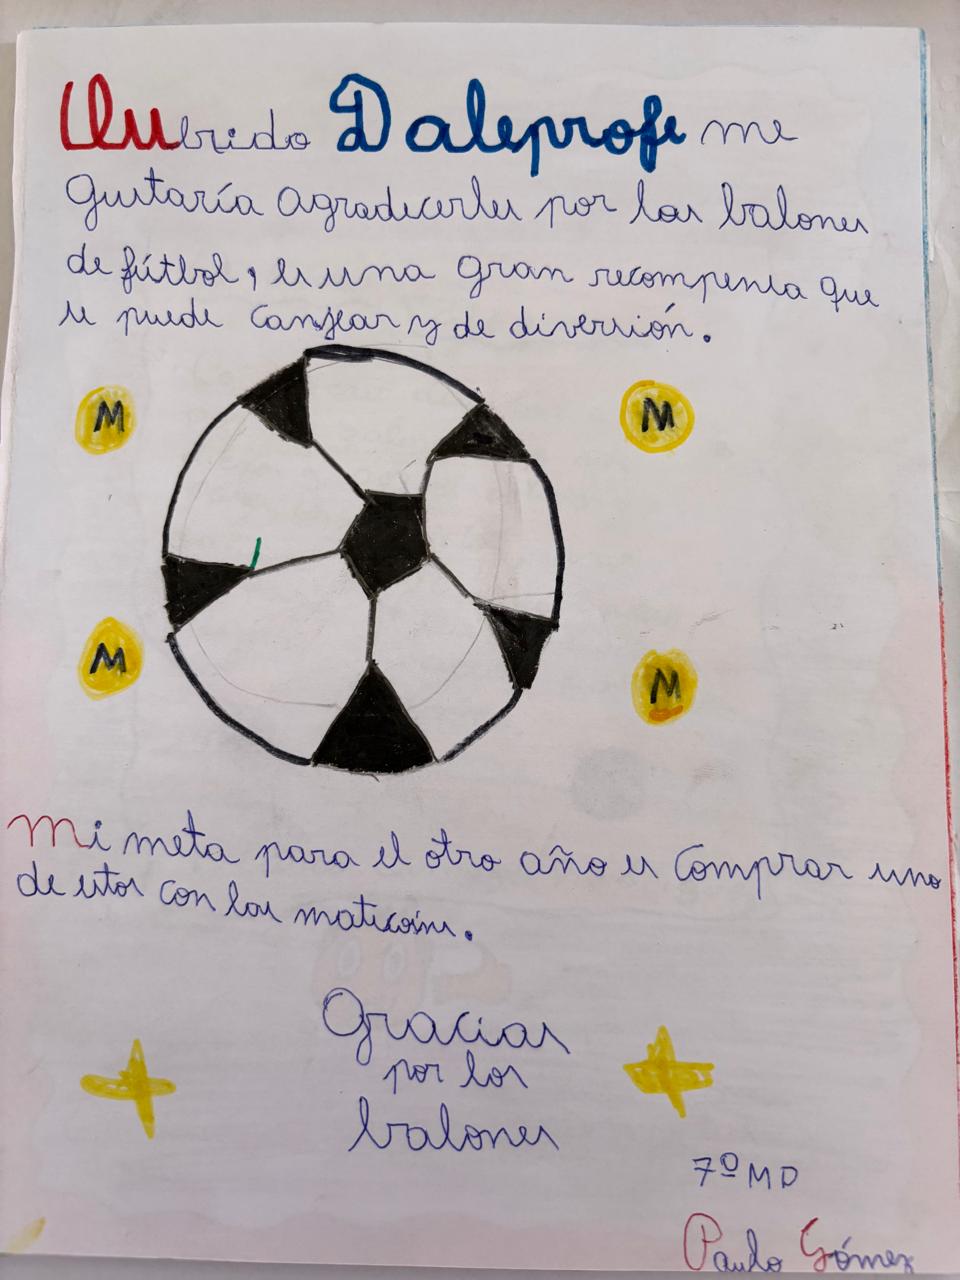 Querido Daleprofe me
gustaría agradecerles por los balones
de fútbol, es una gran recompensa que
se puede canjear y de diversión.
M
M
M
M
Mi meta para el otro año es comprar uno
de estos con las maticoins.
Gracias
por los
balones
7º M D
Paulo Gómez